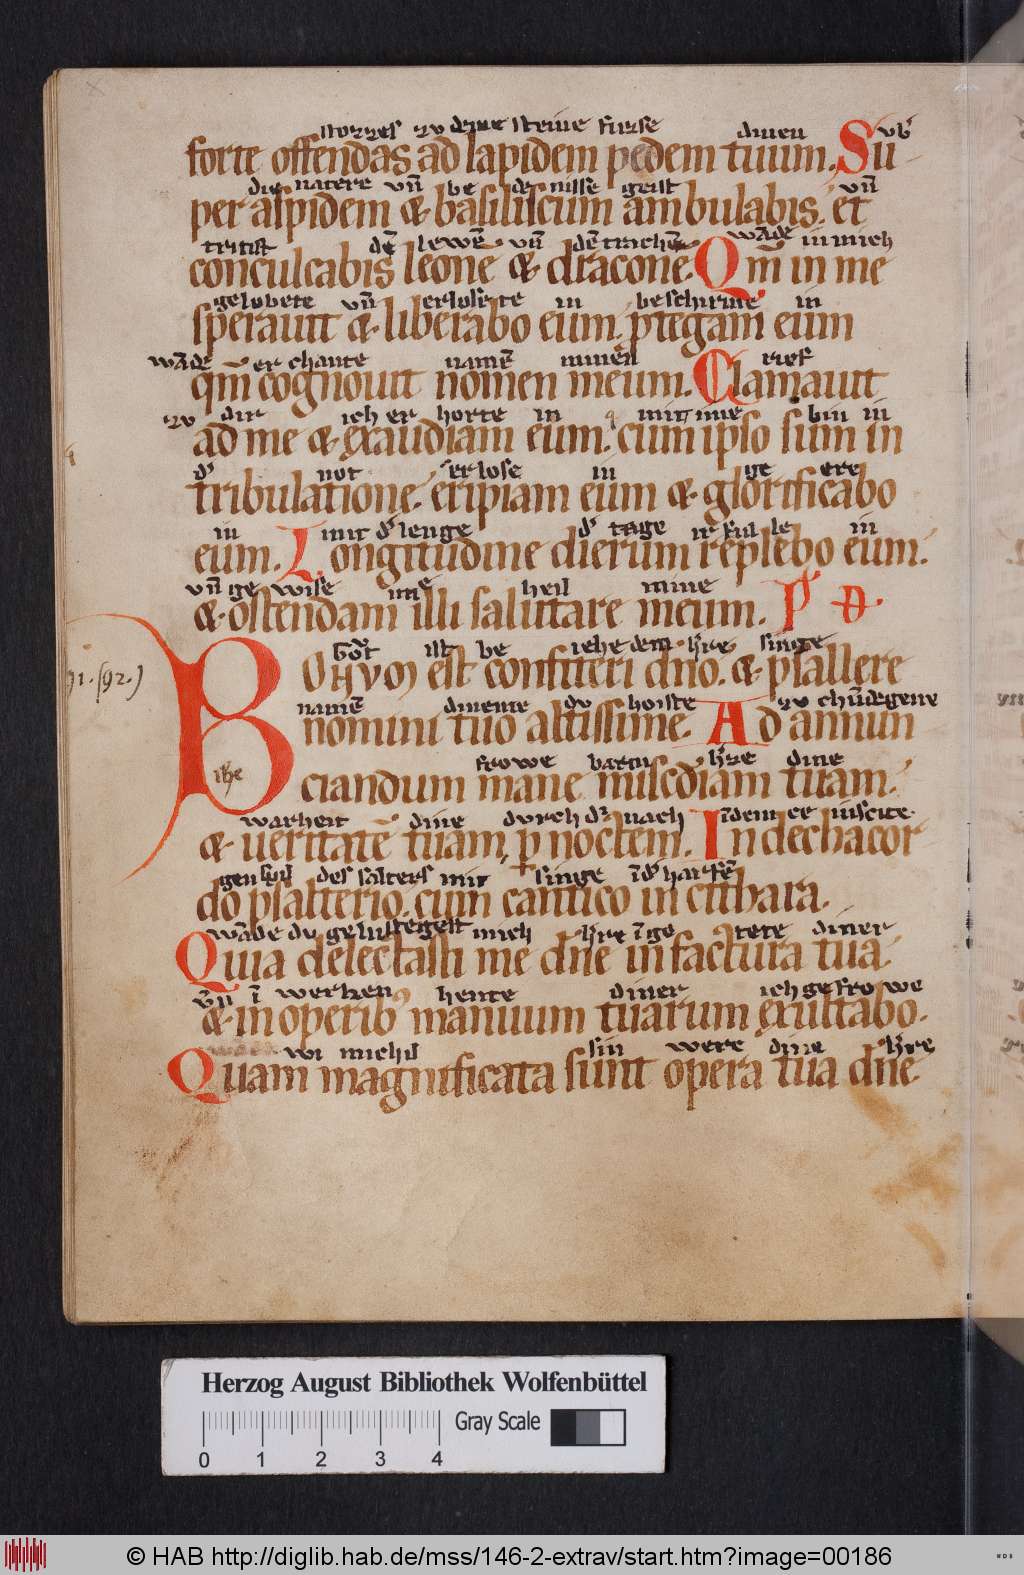 stozzes zv deme steine fusse dinen vb̕
forte offendas ad lapidem pedem tuum. Su
die natere vn̄ be de nisse geist vn̄
per aspidem & basiliscum ambulabis. et
tritist dē lewē vn̄ dē trachē wāde in mich
conculcabis leonē & draconē. Qm̄ in me
gelobete vn̄ erloste in beschirme in
sperauit & liberabo eum. ꝓtegam eum
wāde er chante namē minen rief
qm̄ cognouit nomen meum. Clamauit
zv dir ich er horte in mit ime bin in
ad me & ęxaudiam eum. cum ipso sum in
d̕ not erlose in ge ere
tribulatione. eripiam eum & glorificabo
in mit d̕ lenge d̕ tage irfulle in
eum. Longitudine dierum replebo eum.
vn̄ ge wise ime heil mine
& ostendam illi salutare meum. P D
91. (92.)
Got ist be iehe dem h̕re singe
Bonum est confiteri dn̄o. & psallere
namē dineme dv hoiste zv chūdegene
nomini tuo altissime. Ad annun
frowe barm h̕ze dine
ciandum mane misc̄diam tuam.
warheit dine dvrch d̕ nach īdem cehinseite
& ueritatē tuam p̱ noctem. In dechacor
gen spil des salters mit singe ī d̕ harfē
do psalterio. cum cantico in cithara.
wāde dv gelustegest mich h̕re ī go tete diner
Quia delectasti me dn̄e in factura tua
vn̄ ī werken hente diner ich gefrowe
& in operib; manuum tuarum ęxultabo.
wi michil sin were dine h̕re
Quam magnificata sunt opera tua dn̄e
Herzog August Bibliothek Wolfenbüttel
Gray Scale
0 1 2 3 4
© HAB http://diglib.hab.de/mss/146-2-extrav/start.htm?image=00186